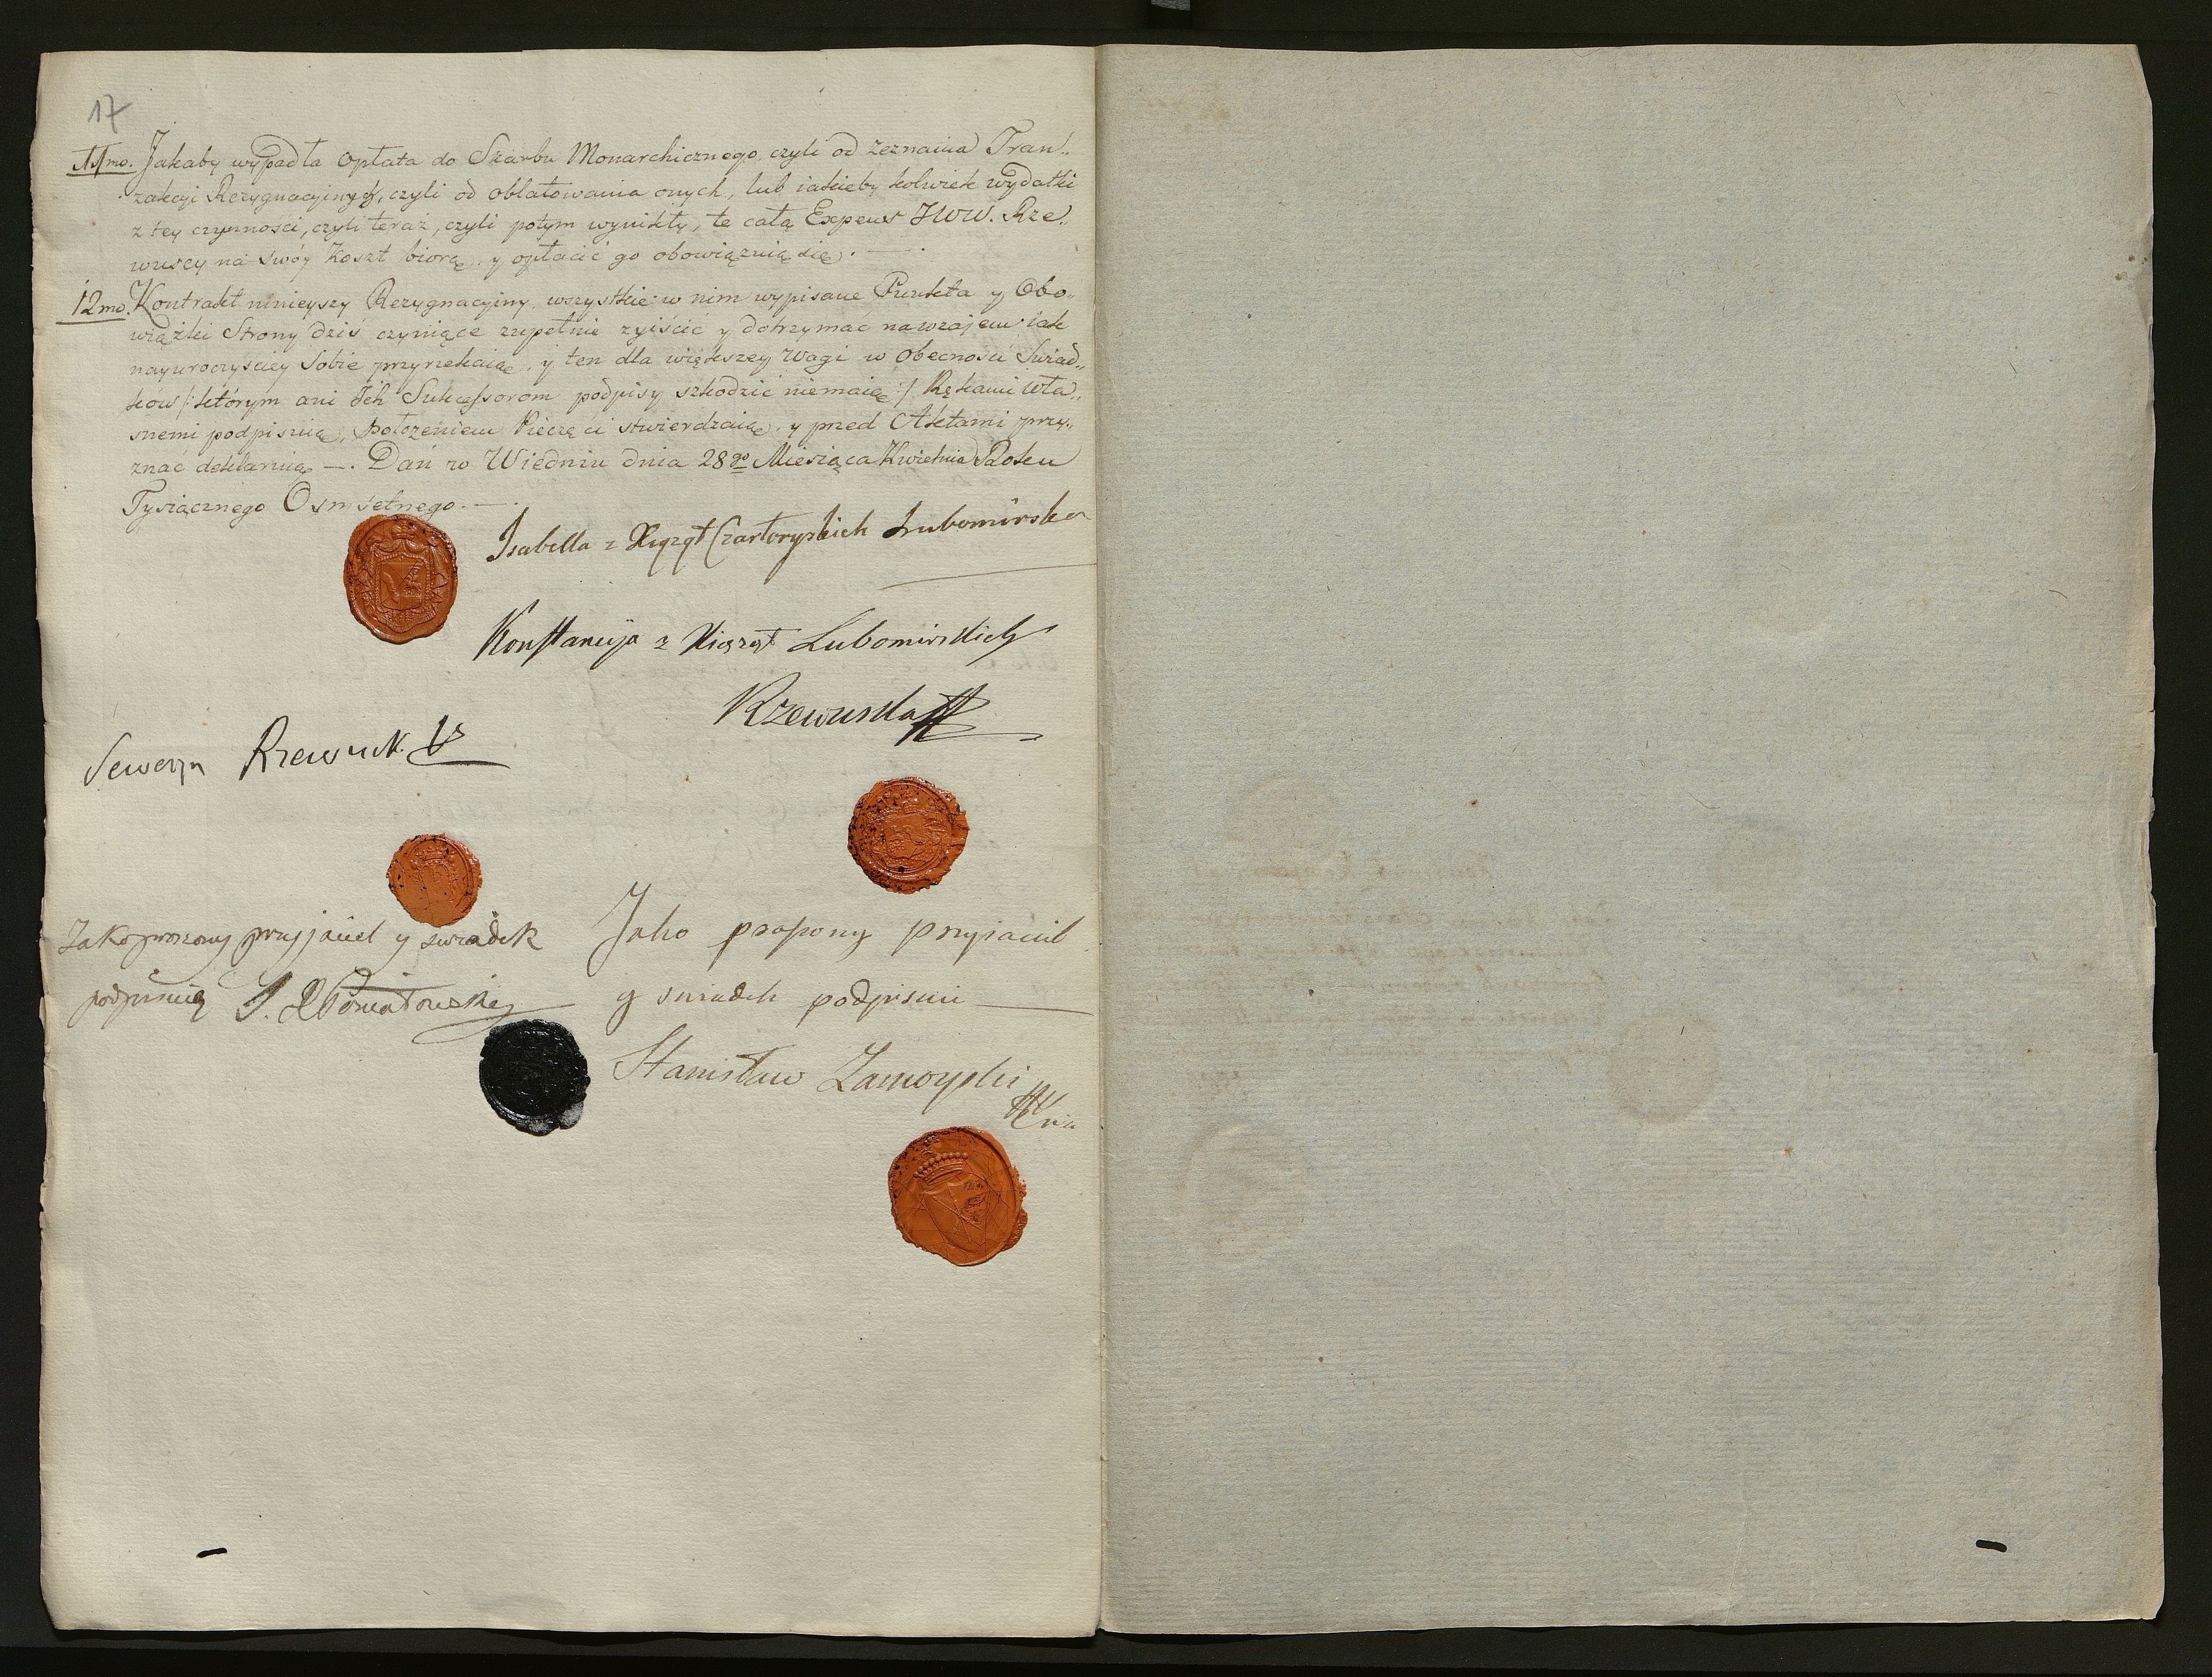 17
11mo. Jakaby wypadła opłata do Skarbu Monarchicznego, czyli od zeznania Tran„
zakcji Rezygnacyinych, czyli od oblatowania onych, lub iakieby kolwiek wydatki
z tey czynności, czyli teraz, czyli potym wynikły, te całą Expens JWW. Rze„
wuscy na swóy Koszt biorą, y opłacić go obowiązuią się. —.
12mo. Kontrakt ninieyszy Rezygnacyiny, wszystkie w nim wypisane Punkta y Obo„
wiązki Strony dziś czyniące zupełnie ziścić y dotrzymać nawzajem iak
nayuroczyściey Sobie przyrzekaią, y ten dla większey wagi w obecności Świad„
kow /: którym ani Ich Sukcessorom podpisy szkodzić niemaią :/ Rękami wła„
snemi podpisuią, położeniem Pieczęci stwierdzaią, y przed Aktami przy„
znać deklaruią —. Dań w Wiedniu dnia 28go Miesiąca Kwietnia Roku
Tysiącznego Osmsetnego. —.
Isabella z Xiążąt Czartoryskich Lubomirska
Konstancyja z Xiążąt Lubomirskich
Rzewuska
Seweryn Rzewuski
Jako proszony przyjaciel y swiadek
podpisuię J. X Poniatowski
Jako proszony przyiaciel
y swiadek podpisuie
Stanisław Zamoyski